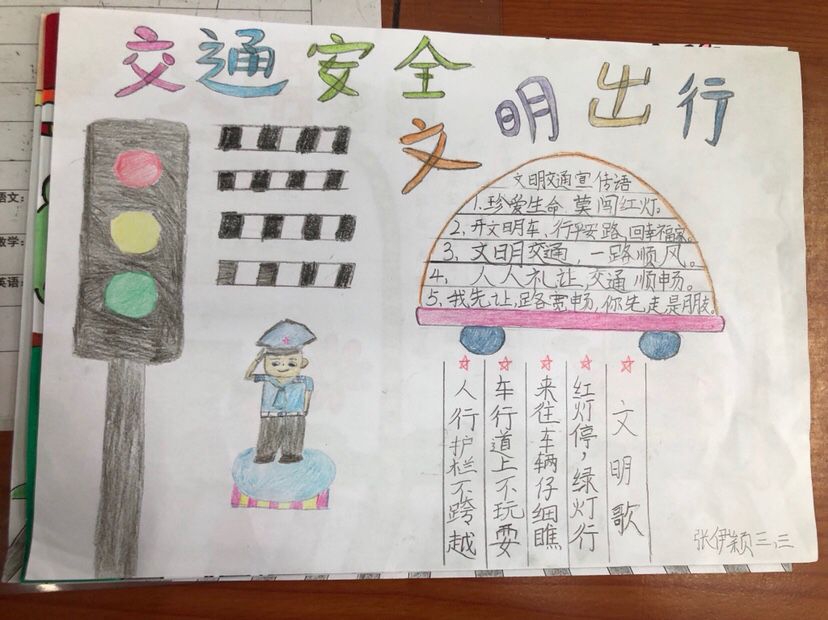 交通安全
文明出行
文明交通宣传语
1.珍爱生命 莫闯红灯。
2、开文明车、行平安路、回幸福家。
3、文明交通，一路顺风。
4、人人礼让,交通顺畅。
5、我先让,路宽畅,你先走是朋友。
文明歌
红灯停，绿灯行
来往车辆仔细瞧
车行道上不玩耍
人行护栏不跨越
张伊颖三.三
语文：
数学：
英语：